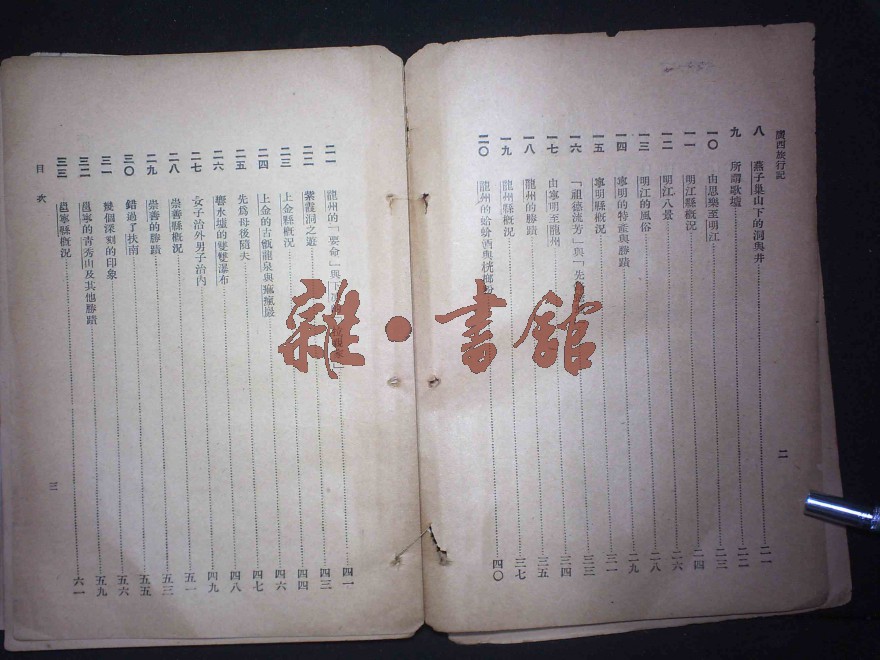 廣西旅行記
二
八 燕子巢山下的洞與井 二一
九 所謂歌墟 二二
一〇 由思樂至明江 二三
一一 明江縣概況 二四
一二 明江八景 二六
一三 明江的風俗 二八
一四 寧明的特產與勝蹟 二九
一五 寧明縣概況 三一
一六 「祖德流芳」與「先 三三
一七 由寧明至龍州 三四
一八 龍州的勝蹟 三五
一九 龍州縣概況 三七
二〇 龍州的蛤蚧酒與桄榔粉 四〇
二一 龍州的「要命」與「 四一
二二 紫霞洞之遊 四三
二三 上金縣概況 四四
二四 上金的古甑龍泉與瘋瘋巖 四六
二五 先為母後隨夫 四七
二六 響水墟的雙雙瀑布 四八
二七 女子治外男子治內 四九
二八 崇善縣概況 五一
二九 崇善的勝蹟 五三
三〇 錯過了扶南 五五
三一 幾個深刻的印象 五六
三二 邕寧的青秀山及其他勝蹟 五九
三三 邕寧縣概況 六一
目次
三
雜·書舘